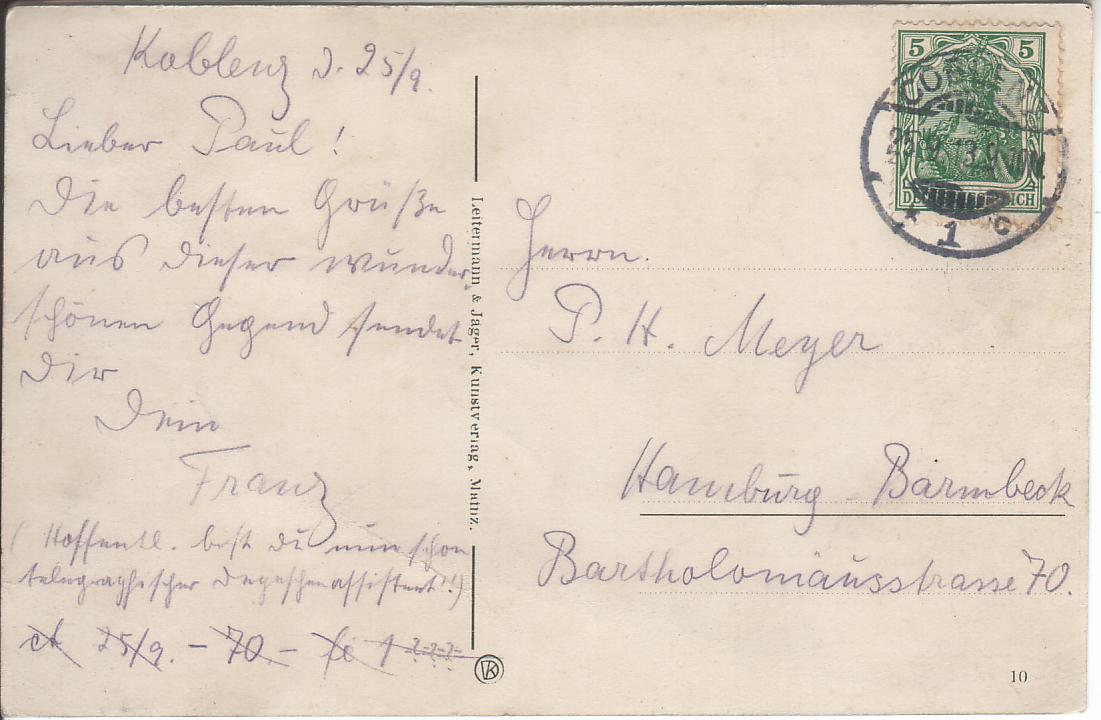 Koblenz d. 25/9.
Lieber Paul!
Die besten Grüße
aus dieser wunder
schönen Gegend sendet
Dir
Dein
Franz
(Hoffentl. bist du nun schon
telegraphischer Depeschenassistent!!)
25/9. - 70 -
Leitermann & Jäger, Kunstverlag, Mainz.
5 5
COBLENZ
25.9.13.9-10N.
* 1 c
REICH
Herrn.
P. H. Meyer
Hamburg - Barmbeck
Bartholomäusstrasse 70.
10